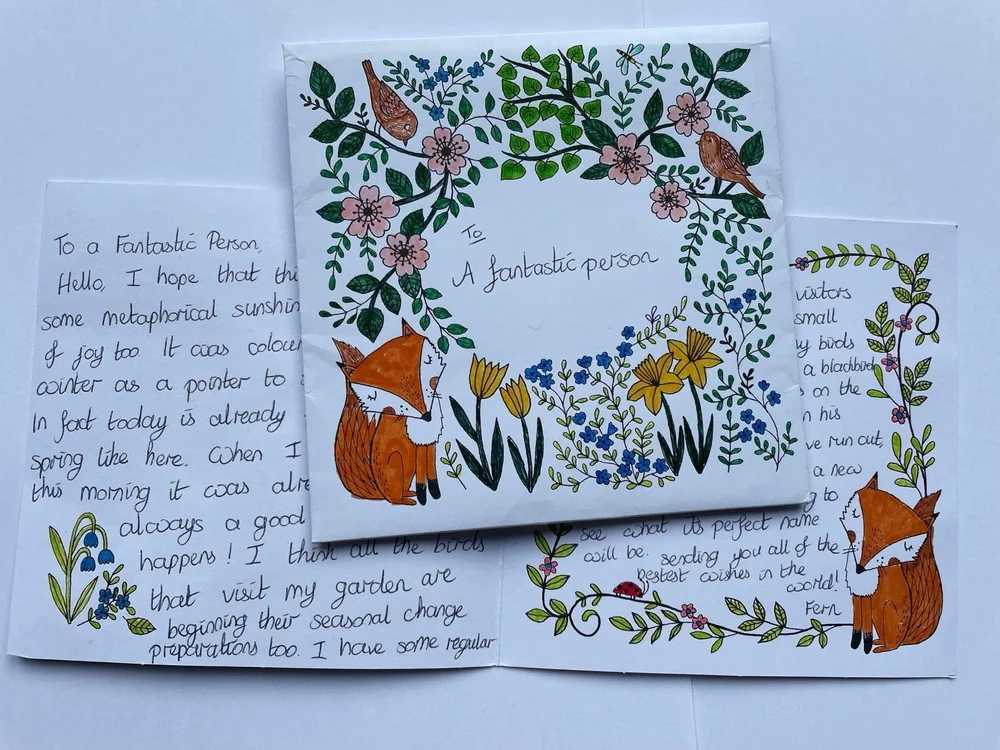 To
A fantastic person
To a Fantastic Person,
Hello, I hope that thi
some metaphorical sunshin
of joy too. It was colour
winter as a pointer to
In fact today is already
spring like here. When I
this morning it was alre
always a good
happens! I think all the birds
that visit my garden are
beginning their seasonal change
preparations too. I have some regular
visitors
small
y birds
a blackbird
on the
his
ve run out,
a new
to
see what its perfect name
will be. sending you all of the
bestest wishes in the
world!
Fern